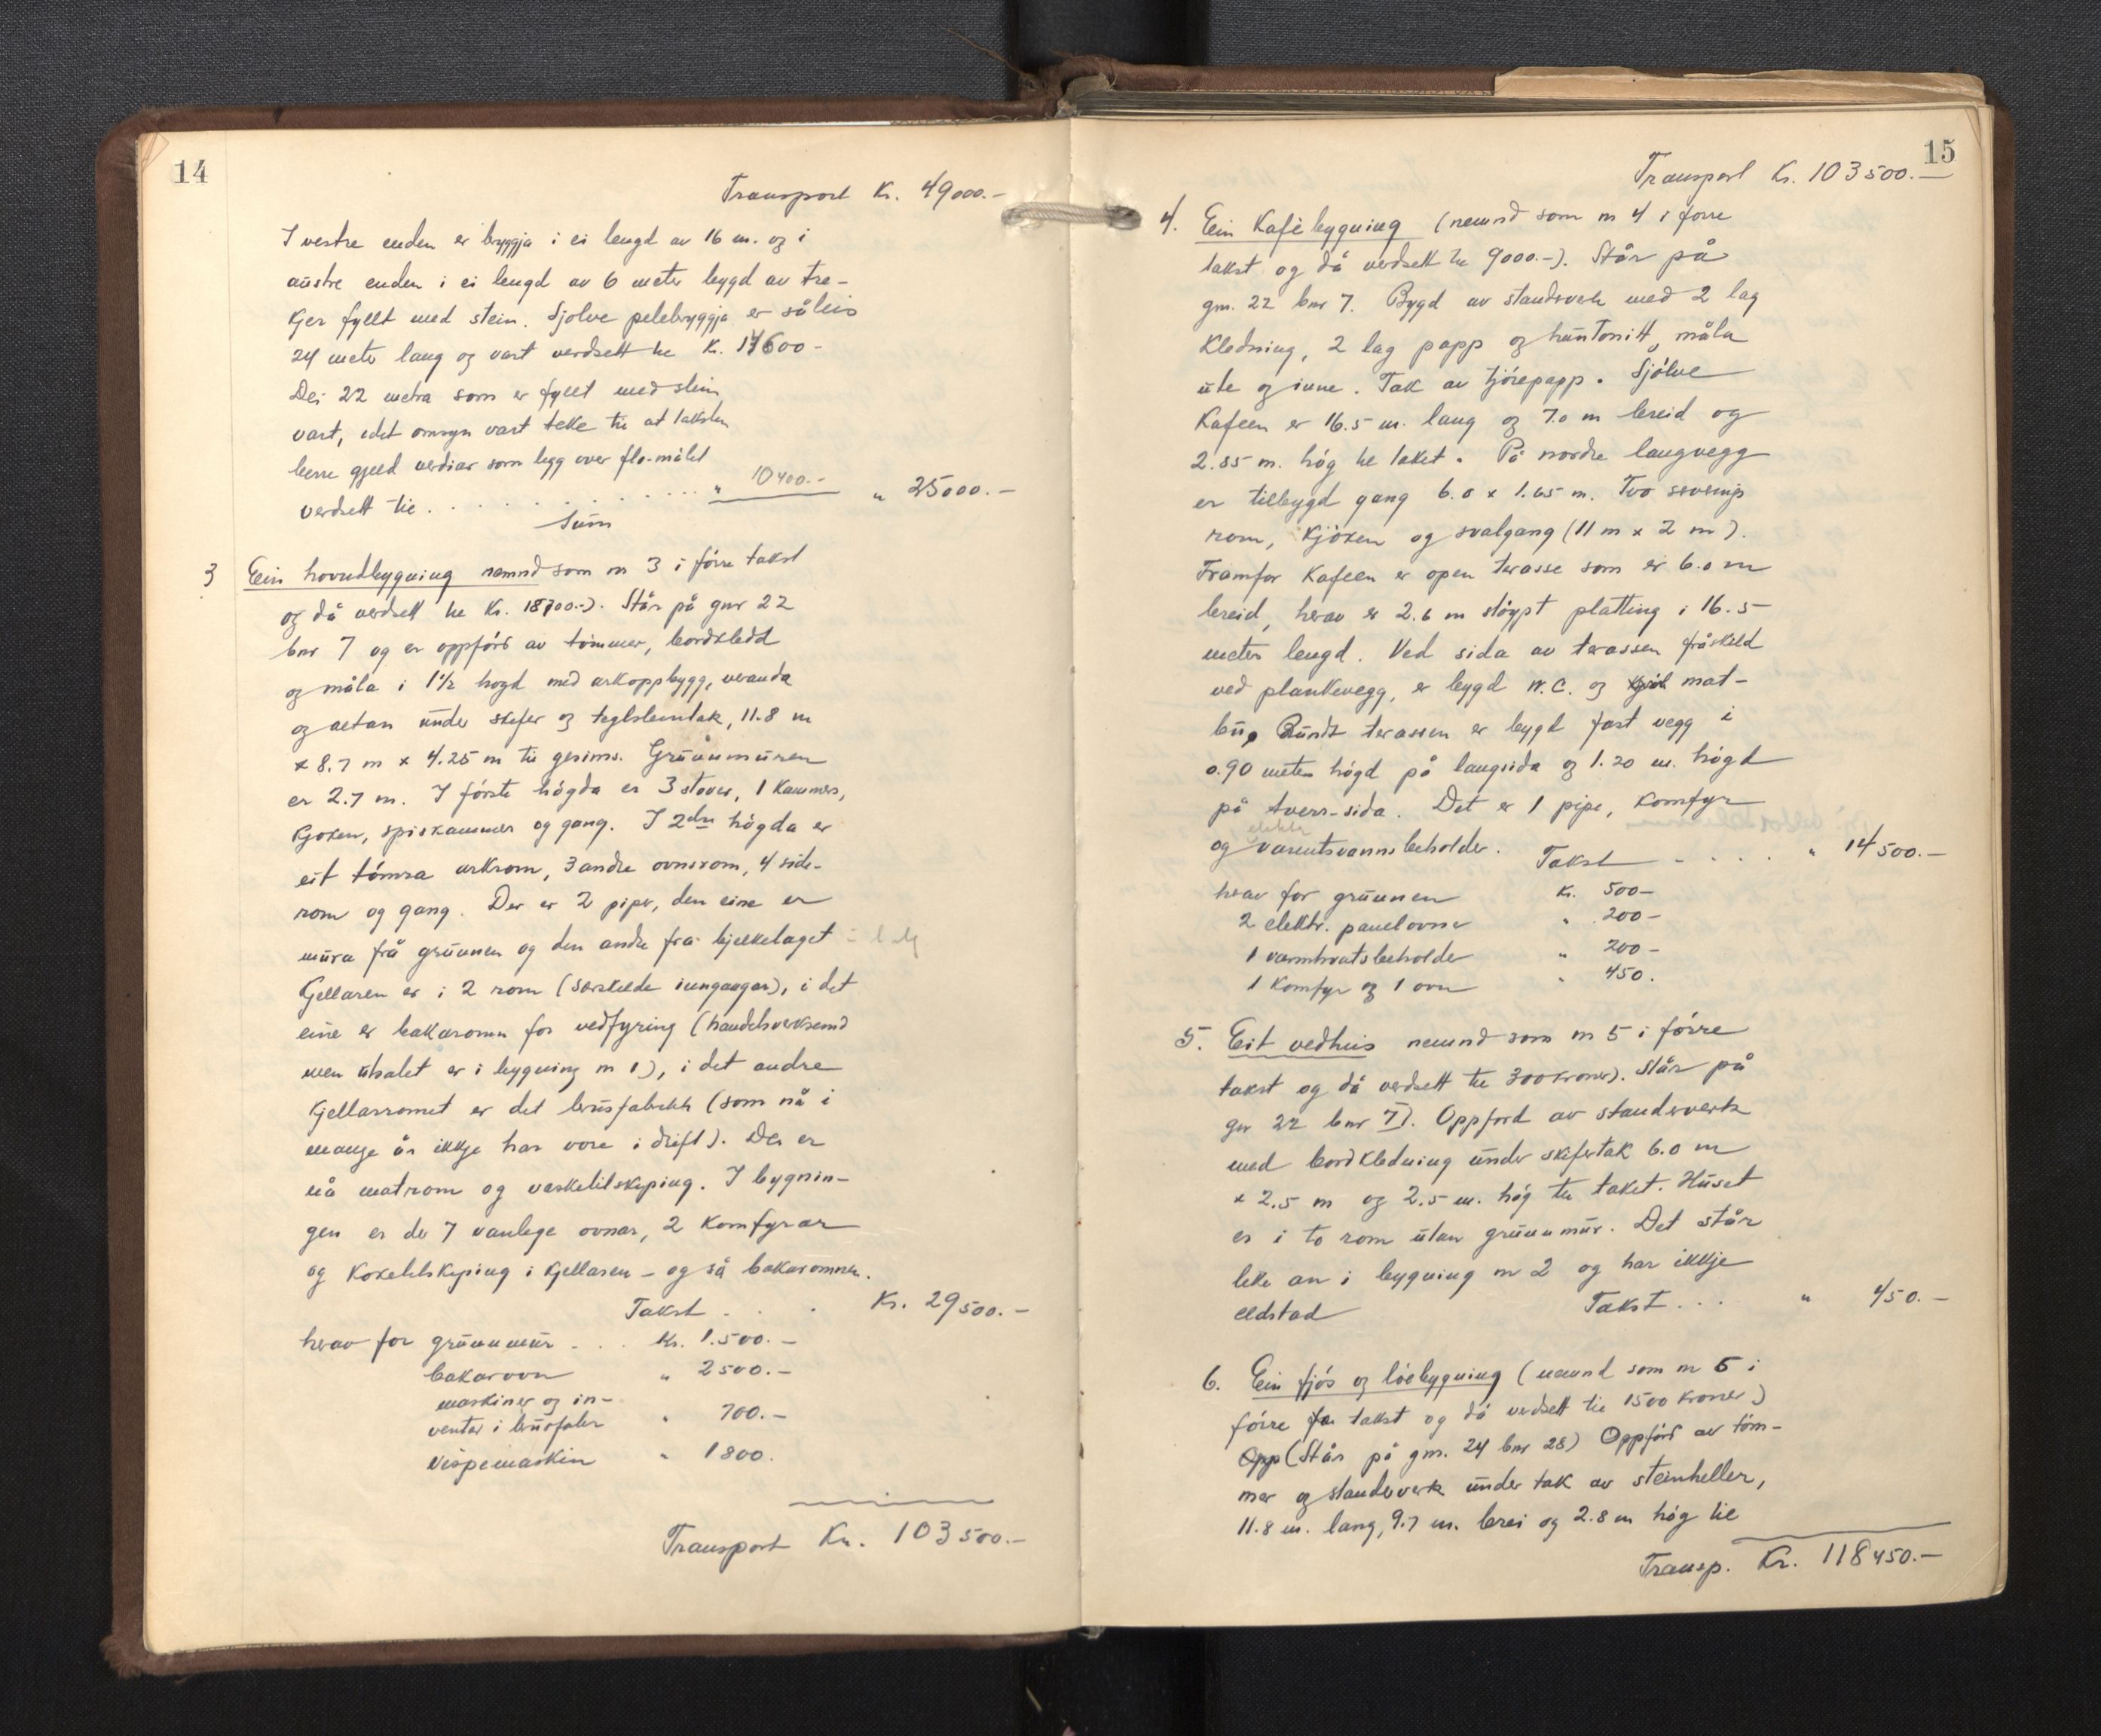 14
Transport Kr. 49000.-
I vestre enden er bryggja i ei lengd av 16 m. og i
austre enden i ei lengd av 6 meter bygd av tre-
kjer fyllt med stein. Sjølve pelebryggja er såleis
24 meter lang og vart verdsett te Kr. 14600-
Dei 22 metra som er fyllt med stein
vart, idet omsyn vart teke til at taksten
berre gjeld verdiar som legg over flo-målet
verdsett til . . . . . . . . . . . . . . " 10400.- " 25000.-
Sum
3 Ein hovudbygning nemnd som nr 3 i førre takst
og då verdsett te Kr. 18700.-). Står på gnr 22
bnr 7 og er oppførd av tømmer, bordkledd
og måla i 1½ høgd med arkoppbygg, veranda
og altan under skifer og teglsteintak, 11.8 m
x 8.7 m x 4.25 m til gesims. Grunnmuren
er 2.7 m. I første høgda er 3 stover, 1 Kammers,
Kjøken, spiskammer og gang. I 2dre høgda er
eit tømra arkrom, 3 andre ovnsrom, 4 side-
rom og gang. Der er 2 piper, den eine er
mura frå grunnen og den andre frå bjelkelaget
Kjellaren er i 2 rom (særskilde inngangar), i det
eine er bakaromn for vedfyring (handelsverksemd
men utsalet er i bygning nr 1), i det andre
Kjellarromet er det brusfabrikk (som nå i
mange år ikkje har vore i drift). Der er
nå matrom og vasketilskiping. I bygnin-
gen er der 7 vanlege ovnar, 2 Komfyrar
og Koketilskiping i Kjellaren - og så bakaromnen.
Takst . . . Kr. 29500.-
herav for grunnmur . . . Kr. 1.500.-
bakarovn " 2500.-
maskiner og in-
ventar i brusfabr " 700.-
Vispemaskin " 1800.
Transport Kr. 103500.-
15
Transport Kr. 103500.-
4. Ein Kafèbygning (nemnd som nr 4 i førre
takst og då verdsett te 9000.-). Står på
gnr. 22 bnr 7. Bygd av standsverk med 2 lag
Kledning, 2 lag papp og huntonitt, måla
ute og inne. Tak av tjørepapp. Sjølve
Kafeen er 16.5 m. lang og 7.0 m breid og
2.85 m. høg te taket. På nordre langvegg
er tilbygd gang 6.0 x 1.65 m. Tvo serverings
rom, Kjøken og svalgang (11 m x 2 m).
Framfor Kafeen er open terasse som er 6.0 m
breid, herav er 2.6 m støypt platting i 16.5
meter lengd. Ved sida av terassen fråskild
ved plankevegg, er bygd W.C. og mat-
bu. Rundt terassen er bygd fast vegg i
0.90 meter høgd på langsida og 1.20 m. høgd
på tverr-sida. Det er 1 pipe, Komfyr
elektr
og varmtvannsbeholder. Takst - . . . . " 14500.-
herav for grunnen Kr. 500-
2 elektr. panelovner " 200-
1 varmtvatsbeholder " 200-
1 Komfyr og 1 ovn " 450.
5. Eit vedhus nemnd som nr 5 i førre
takst og då verdsett te 300 kroner). Står på
gnr 22 bnr 7). Oppførd av standsverk
med bordkledning under skifertak 6.0 m
x 2.5 m og 2.5 m. høg te taket. Huset
er i to rom utan grunnmur. Det står
like an i bygning nr 2 og har ikkje
eldstad Takst . . . " 450.-
6. Ein fjøs og løebygning (nemnd som nr 6 i
førre takst og då verdsett til 1500 kroner)
Opp (Står på gnr. 24 bnr 28) Oppførd av tøm-
mer og standsverk under tak av steinheller,
11.8 m. lang, 9.7 m. brei og 2.8 m høg til
Transp. Kr. 118450.-